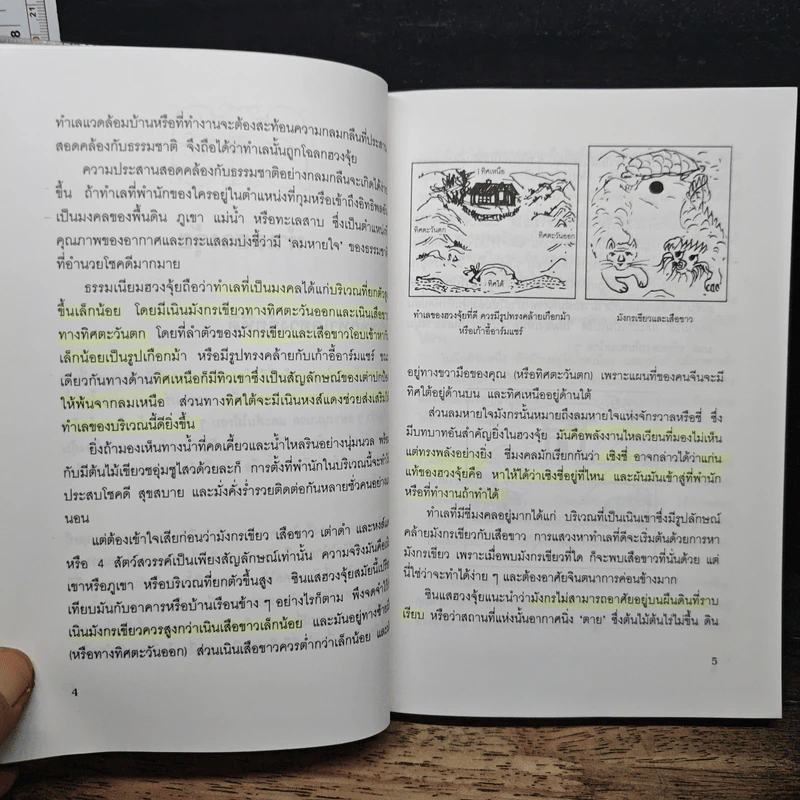 ทำเลแวดล้อมบ้านหรือที่ทำงานจะต้องสะท้อนความกลมกลืนที่ประสาน
สอดคล้องกับธรรมชาติ จึงถือได้ว่าทำเลนั้นถูกโฉลกฮวงจุ้ย
ความประสานสอดคล้องกับธรรมชาติอย่างกลมกลืนจะเกิดได้
ขึ้น ถ้าทำเลที่พำนักของใครอยู่ในตำแหน่งที่กุมหรือเข้าถึง
เป็นมงคลของพื้นดิน ภูเขา แม่น้ำ หรือทะเลสาบ ซึ่งเป็นตำแหน่ง
คุณภาพของอากาศและกระแสลมบ่งชี้ว่ามี 'ลมหายใจ' ของ
ที่อำนวยโชคดีมากมาย
ธรรมเนียมฮวงจุ้ยถือว่าทำเลที่เป็นมงคลได้แก่บริเวณที่ยกตัว
ขึ้นเล็กน้อย โดยมีเนินมังกรเขียวทางทิศตะวันออกและเนินเสือขาว
ทางทิศตะวันตก โดยที่ลำตัวของมังกรเขียวและเสือขาวโอบเข้าหากัน
เล็กน้อยเป็นรูปเกือกม้า หรือมีรูปทรงคล้ายกับเก้าอี้อาร์มแชร์
เดียวกันทางด้านทิศเหนือก็มีทิวเขาซึ่งเป็นสัญลักษณ์ของเต่าปกป้อง
ให้พ้นจากลมเหนือ ส่วนทางทิศใต้จะมีเนินหงส์แดงช่วยส่งเสริมให้
ทำเลของบริเวณนี้ดียิ่งขึ้น
ยิ่งถ้ามองเห็นทางน้ำที่คดเคี้ยวและน้ำไหลรินอย่างนุ่มนวล
กับมีต้นไม้เขียวชอุ่มชูไสวด้วยละก็ การตั้งที่พำนักในบริเวณนี้จะ
ประสบโชคดี สุขสบาย และมั่งคั่งร่ำรวยติดต่อกันหลายชั่วคนอย่าง
นอน
แต่ต้องเข้าใจเสียก่อนว่ามังกรเขียว เสือขาว เต่าดำ และหงส์
หรือ 4 สัตว์สวรรค์เป็นเพียงสัญลักษณ์เท่านั้น ความจริงมันคือ
เขาหรือภูเขา หรือบริเวณที่ยกตัวขึ้นสูง ซินแสฮวงจุ้ยสมัยนี้
เทียบมันกับอาคารหรือบ้านเรือนข้าง ๆ อย่างไรก็ตาม พึงจดจำ
เนินมังกรเขียวควรสูงกว่าเนินเสือขาวเล็กน้อย และมันอยู่ทางซ้าย
(หรือทางทิศตะวันออก) ส่วนเนินเสือขาวควรต่ำกว่าเล็กน้อย และ
4
ทิศเหนือ
ทิศตะวันตก
ทิศตะวันออก
ทิศใต้
ทำเลของฮวงจุ้ยที่ดี ควรมีรูปทรงคล้ายเกือกม้า
หรือเก้าอี้อาร์มแชร์
มังกรเขียวและเสือขาว
อยู่ทางขวามือของคุณ (หรือทิศตะวันตก) เพราะแผนที่ของคนจีนจะมี
ทิศใต้อยู่ด้านบน และทิศเหนืออยู่ด้านใต้
ส่วนลมหายใจมังกรนั้นหมายถึงลมหายใจแห่งจักรวาลหรือชี่ ซึ่ง
มีบทบาทอันสำคัญยิ่งในฮวงจุ้ย มันคือพลังงานไหลเวียนที่มองไม่เห็น
แต่ทรงพลังอย่างยิ่ง ชี่มงคลมักเรียกกันว่า เชิงชี่ อาจกล่าวได้ว่าแก่น
แท้ของฮวงจุ้ยคือ หาให้ได้ว่าเชิงชี่อยู่ที่ไหน และผันมันเข้าสู่ที่พำนัก
หรือที่ทำงานถ้าทำได้
ทำเลที่มีชี่มงคลอยู่มากได้แก่ บริเวณที่เป็นเนินเขาซึ่งมีรูปลักษณ์
คล้ายมังกรเขียวกับเสือขาว การแสวงหาทำเลที่ดีจะเริ่มต้นด้วยการหา
มังกรเขียว เพราะเมื่อพบมังกรเขียวที่ใด ก็จะพบเสือขาวที่นั่นด้วย แต่
นี่ใช่ว่าจะทำได้ง่าย ๆ และต้องอาศัยจินตนาการค่อนข้างมาก
ซินแสฮวงจุ้ยแนะนำว่ามังกรไม่สามารถอาศัยอยู่บนผืนดินที่ราบ
เรียบ หรือว่าสถานที่แห่งนั้นอากาศนิ่ง 'ตาย' ซึ่งต้นไม้ต้นไรไม่ขึ้น ดิน
5